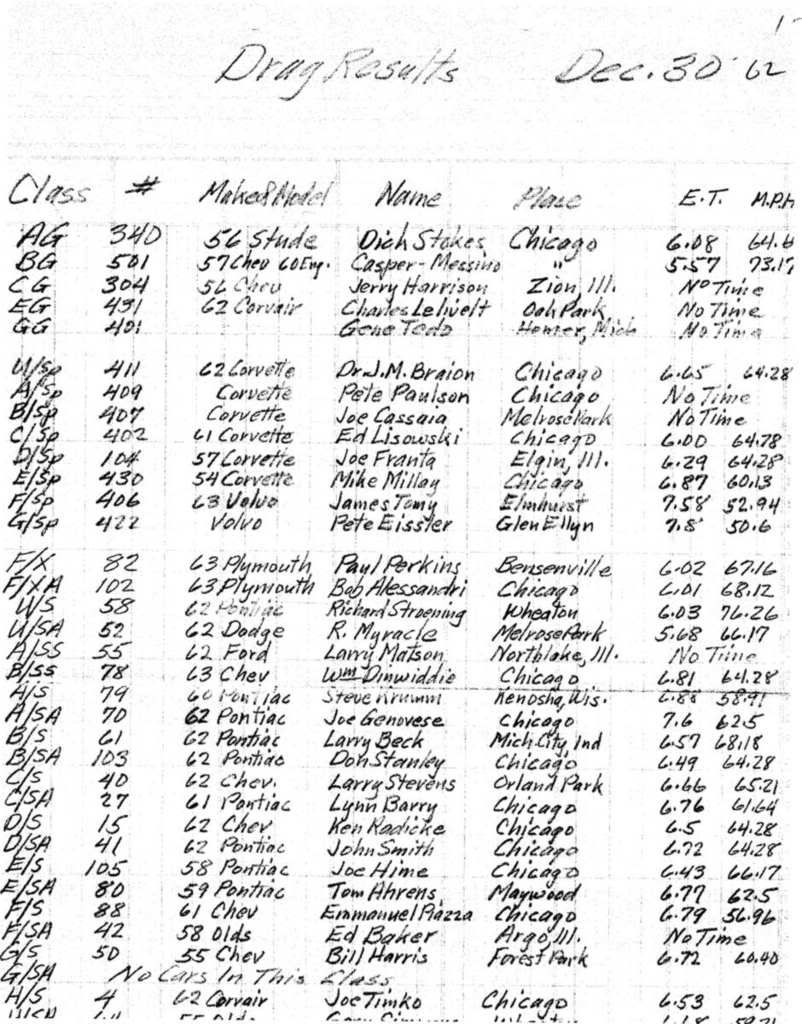 Drag Results Dec. 30 '62
Class # Make & Model Name Place E.T. M.P.H
AG 340 56 Stude Dich Stokes Chicago 6.08 64.6
BG 501 57 Chev 60 Eng. Casper-Messino " 5.57 73.17
CG 304 56 Chev Jerry Harrison Zion, Ill. No Time
EG 431 62 Corvair Charles Lelivelt Oak Park No Time
GG 401 Gene Todo Mich No Time
U/Sp 411 62 Corvette Dr. J.M. Braion Chicago 6.65 64.28
A/Sp 409 Corvette Pete Paulson Chicago No Time
B/Sp 407 Corvette Joe Cassaia Melrose Park No Time
C/Sp 402 61 Corvette Ed Lisowski Chicago 6.00 64.78
D/Sp 104 57 Corvette Joe Franta Elgin, Ill. 6.29 64.28
E/Sp 430 54 Corvette Mike Millay Chicago 6.87 60.13
F/Sp 406 63 Volvo James Tomy Elmhurst 7.58 52.94
G/Sp 422 Volvo Pete Eissler Glen Ellyn 7.8 50.6
F/X 82 63 Plymouth Paul Perkins Bensenville 6.02 67.16
F/XA 102 63 Plymouth Bob Alessandri Chicago 6.01 68.12
U/S 58 62 Pontiac Richard Stroening Wheaton 6.03 76.26
U/SA 52 62 Dodge R. Myracle Melrose Park 5.68 66.17
A/SS 55 62 Ford Larry Matson Northlake, Ill. No Time
B/SS 78 63 Chev Wm Dinwiddie Chicago 6.81 64.28
A/S 79 60 Pontiac Steve Krumm Kenosha, Wis. 6.88 58.91
A/SA 70 62 Pontiac Joe Genovese Chicago 7.6 62.5
B/S 61 62 Pontiac Larry Beck Mich City, Ind 6.57 68.18
B/SA 103 62 Pontiac Don Stanley Chicago 6.49 64.28
C/S 40 62 Chev. Larry Stevens Orland Park 6.66 65.21
C/SA 27 61 Pontiac Lynn Barry Chicago 6.76 61.64
D/S 15 62 Chev Ken Radicke Chicago 6.5 64.28
D/SA 41 62 Pontiac John Smith Chicago 6.72 64.28
E/S 105 58 Pontiac Joe Hime Chicago 6.43 66.17
E/SA 80 59 Pontiac Tom Ahrens Maywood 6.77 62.5
F/S 88 61 Chev Emmanuel Piazza Chicago 6.79 56.96
F/SA 42 58 Olds Ed Baker Argo, Ill. No Time
G/S 50 55 Chev Bill Harris Forest Park 6.72 60.40
G/SA No Cars In This Class
H/S 4 62 Corvair Joe Timko Chicago 6.53 62.5